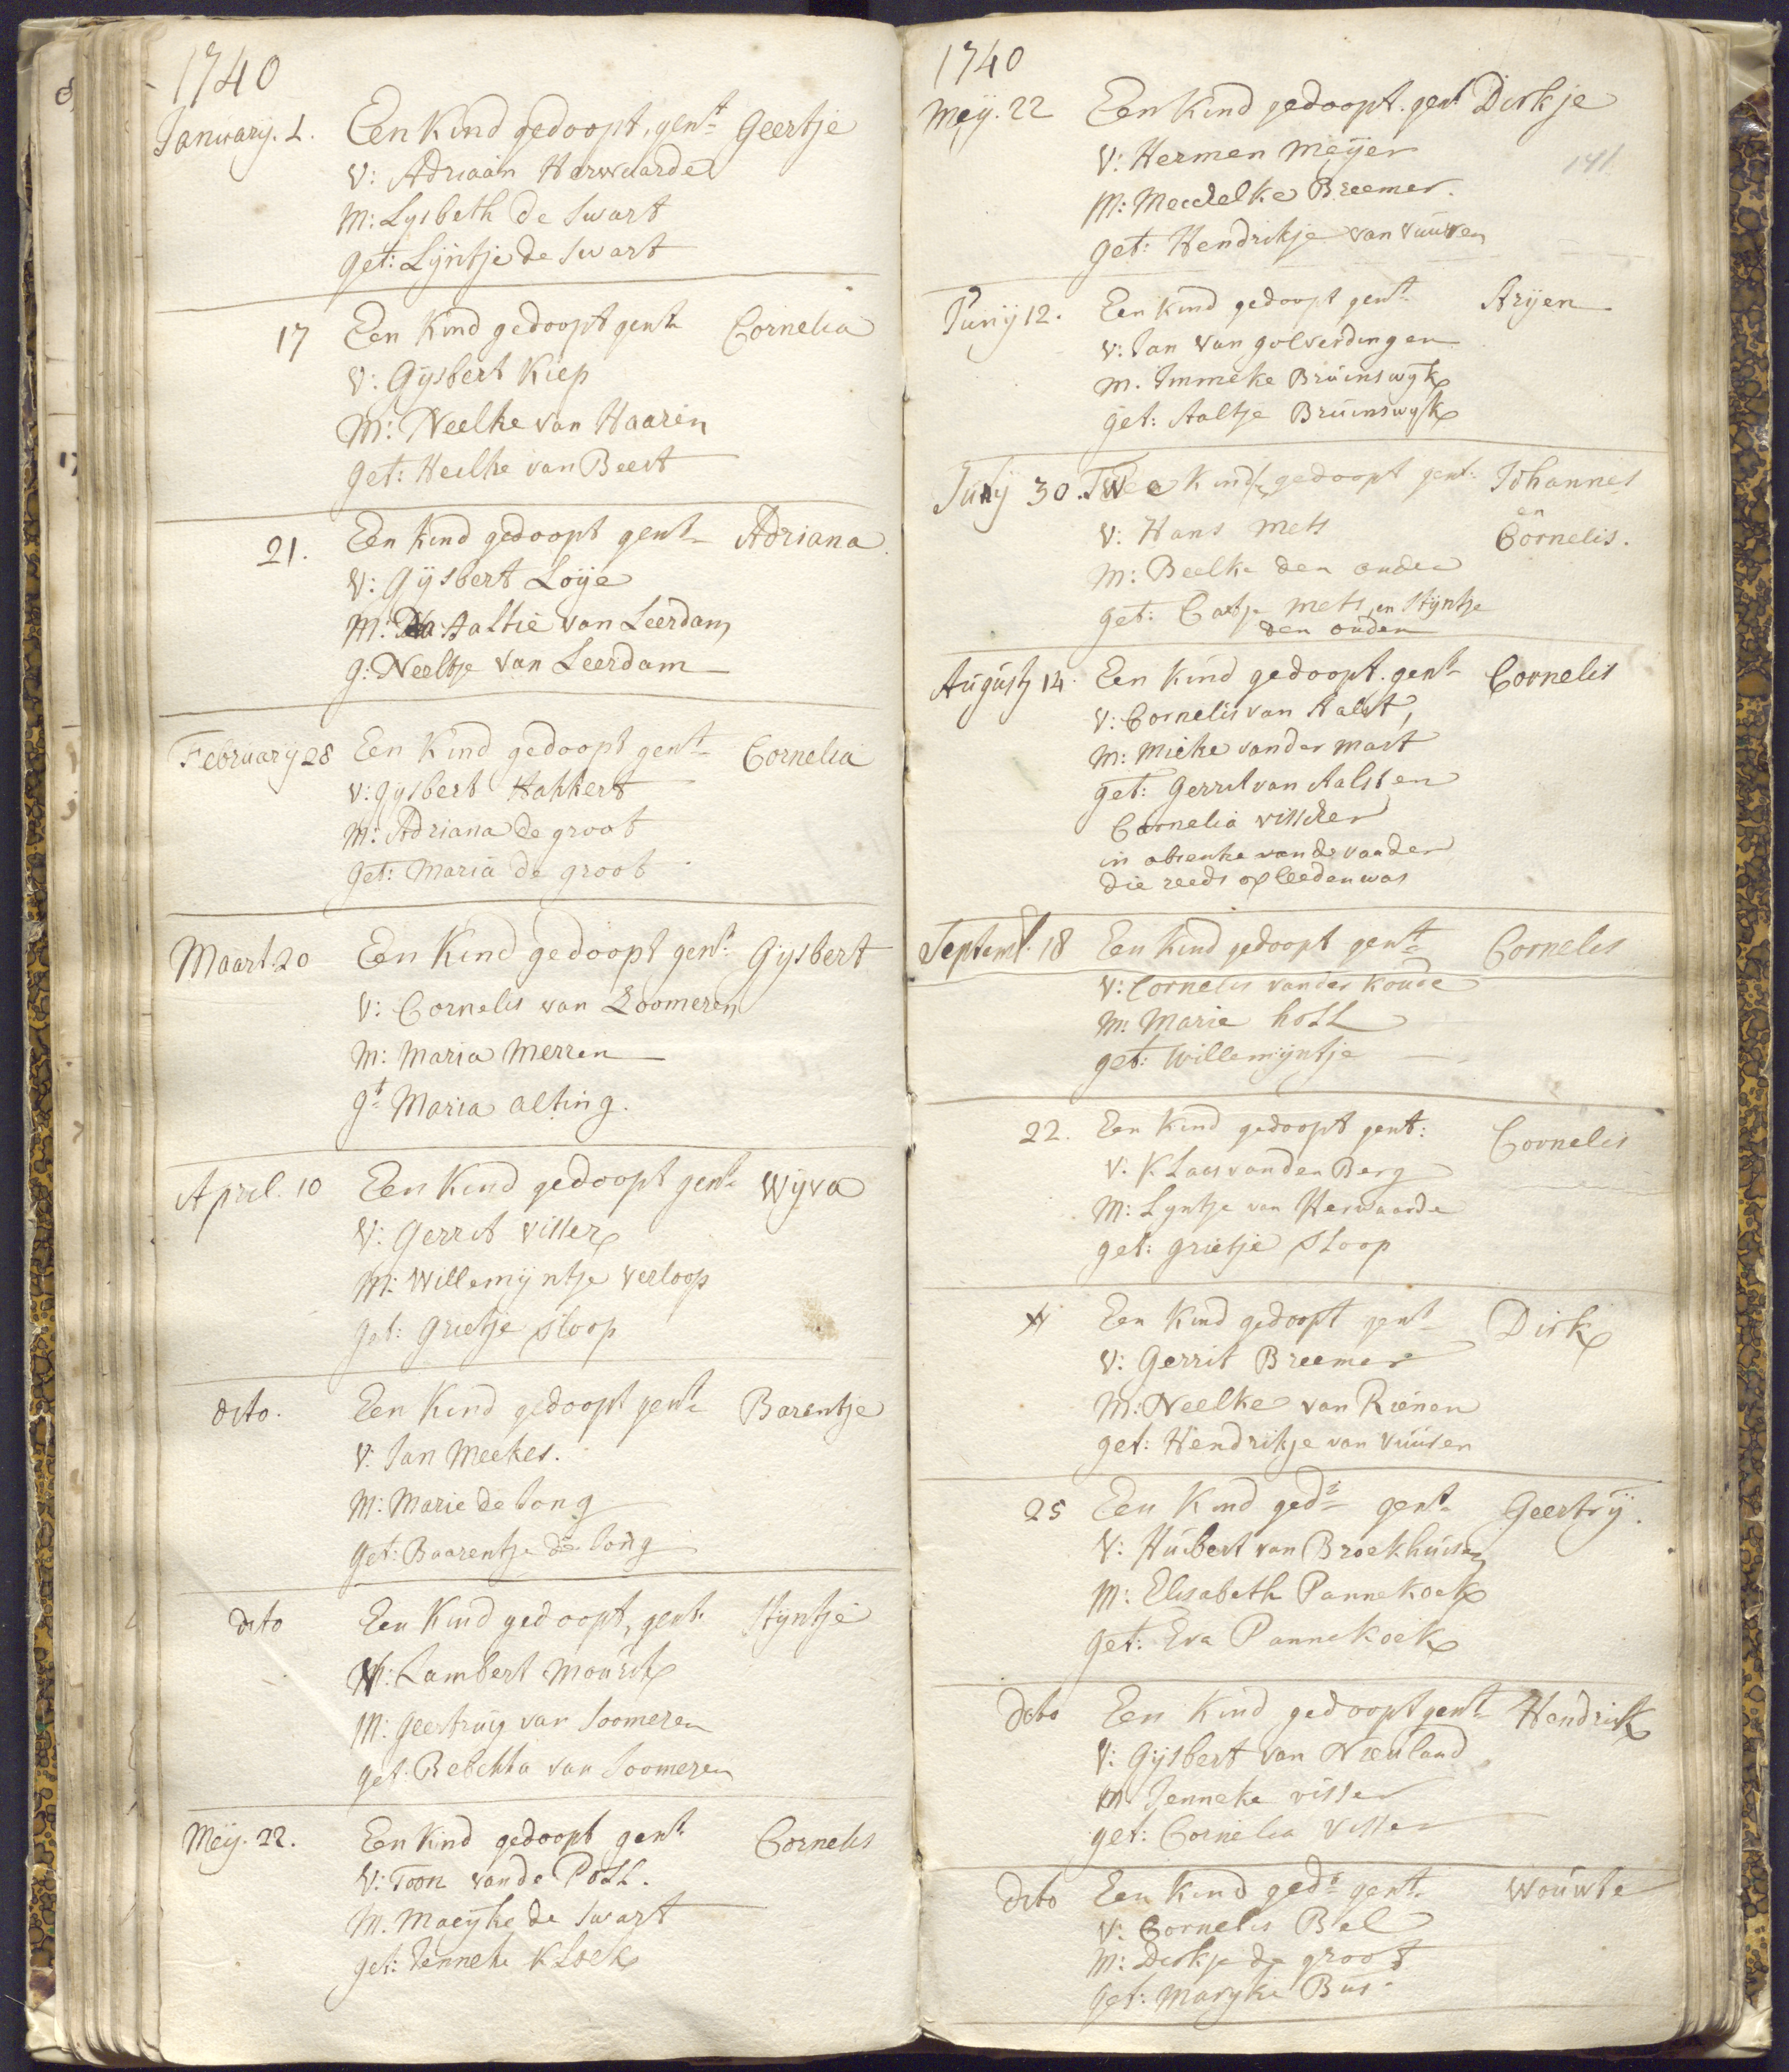 1740
January. 1. Een Kind gedoopt, gent Geertje
V: Adriaan Harwaarde
M: Lysbeth de Swart
get: Lyntje de Swart
17 Een Kind gedoopt gent Cornelia
V: Gysbert Kiep
M: Neelke van Haaren
get: Heilke van Beest
21. Een kind gedoopt gent Adriana
V: Gijsbert Loije
M: Aaltie van Leerdam
g: Neeltje van Leerdam
February 28 Een Kind gedoopt gent Cornelia
V: gysbert Hakkert
M: Adriana de groot
get: Maria de groot
Maart 20 Een Kind gedoopt gent Gysbert
V: Cornelis van Zoomeren
M: Maria Merren
gt Maria alting.
April. 10 Een Kind gedoopt gent Wyva
V: Gerrit Visser
M: Willemijntje Verloop
get: Grietje Sloop
dito. Een Kind gedoopt gent Barentje
V: Jan Meekes.
M: Marie de Jong
get: Baarentje de Jong
dito Een Kind gedoopt, gent Styntje
V: Lambert Mourik
M: Geertruy van Soomeren
get: Rebekka van Soomeren
Meij. 22. Een Kind gedoopt gent Cornelis
V: Toon van de Poll.
M. Maeyke de Swart
get: Jenneke Kloek
1740
Meij. 22 Een Kind gedoopt. gent Dirkje
V: Hermen Meijer
141
M: Mechelke Breemer.
get: Hendrikje van Vuuren
Junij 12. Een Kind gedoopt gent Aryen
V: Jan Van golverdingen
M. Immeke Bruinswyk
get: Aaltje Bruinswyk
July 30. Twee Kind gedoopt gent: Johannes
en
V: Hans Mets Cornelis.
M: Beelke den ouden
get: Catje Mets, en Styntje
den ouden
Augusty 14. Een Kind gedoopt. gent Cornelis
V: Cornelis van Aalst,
M: Mieke vander Mast
get: Gerrit van Aalst en
Cornelia Visscher
in absentie van de vaader
die reeds opleeden was
Septemb. 18 Een Kind gedoopt gent Cornelis
V: Cornelis vander Koude
M: Marie holl
get: Willemijntje
22. Een Kind gedoopt gent: Cornelis
V: Klaas van den Berg
M: Lyntje van Herwaarde
get: grietje Sloop
Een Kind gedoopt gent Dirk
V: Gerrit Breemer
M: Neelke van Rienen
get: Hendrikje van Vuuren
25 Een Kind gedt gent Geertry.
V: Huibert van Broekhuisen
M: Elisabeth Pannekoek
get: Eva Pannekoek
dito Een Kind gedoopt gent Hendrik
V: Gijsbert van Nieuland
M: Jenneke visser
get: Cornelia Visser
dito Een Kind gedt gent. Wouwte
V: Cornelis Bel
M: Dirkje de groot
get: Maryke Bus